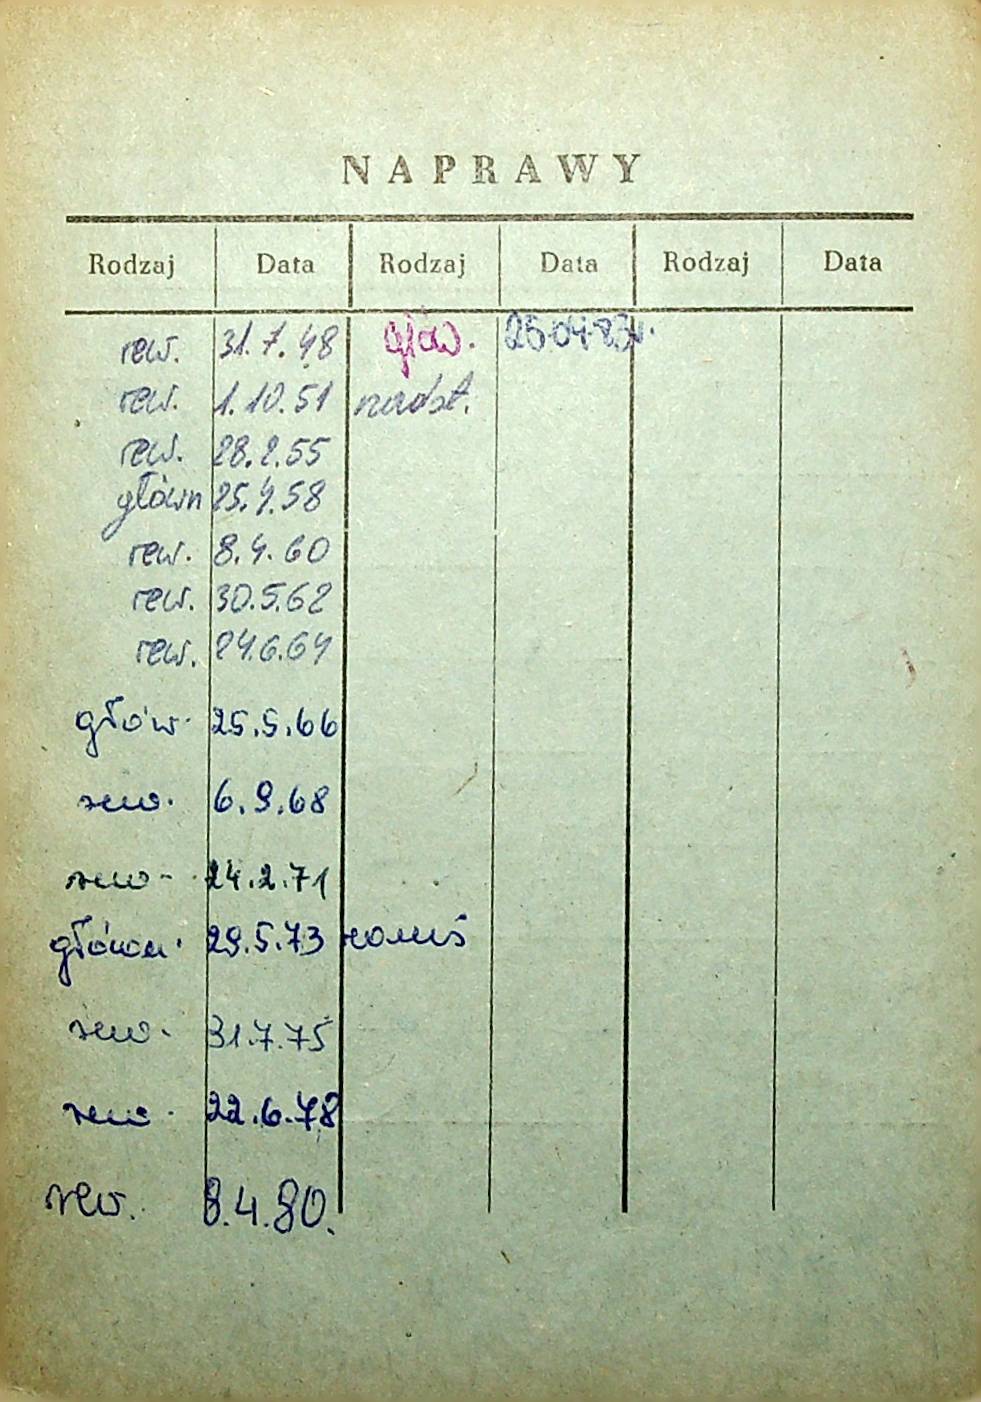 NAPRAWY
Rodzaj Data Rodzaj Data Rodzaj Data
rew. 31.7.48 głów. 25.04.83r.
rew. 1.10.51 nadst.
rew. 28.2.55
główn 25.4.58
rew. 8.4.60
rew. 30.5.62
rew. 24.6.64
głów. 25.5.66
rew. 6.9.68
rew. 24.2.71
główn. 29.5.73
rew. 31.7.75
rew. 22.6.78
rew. 8.4.80.